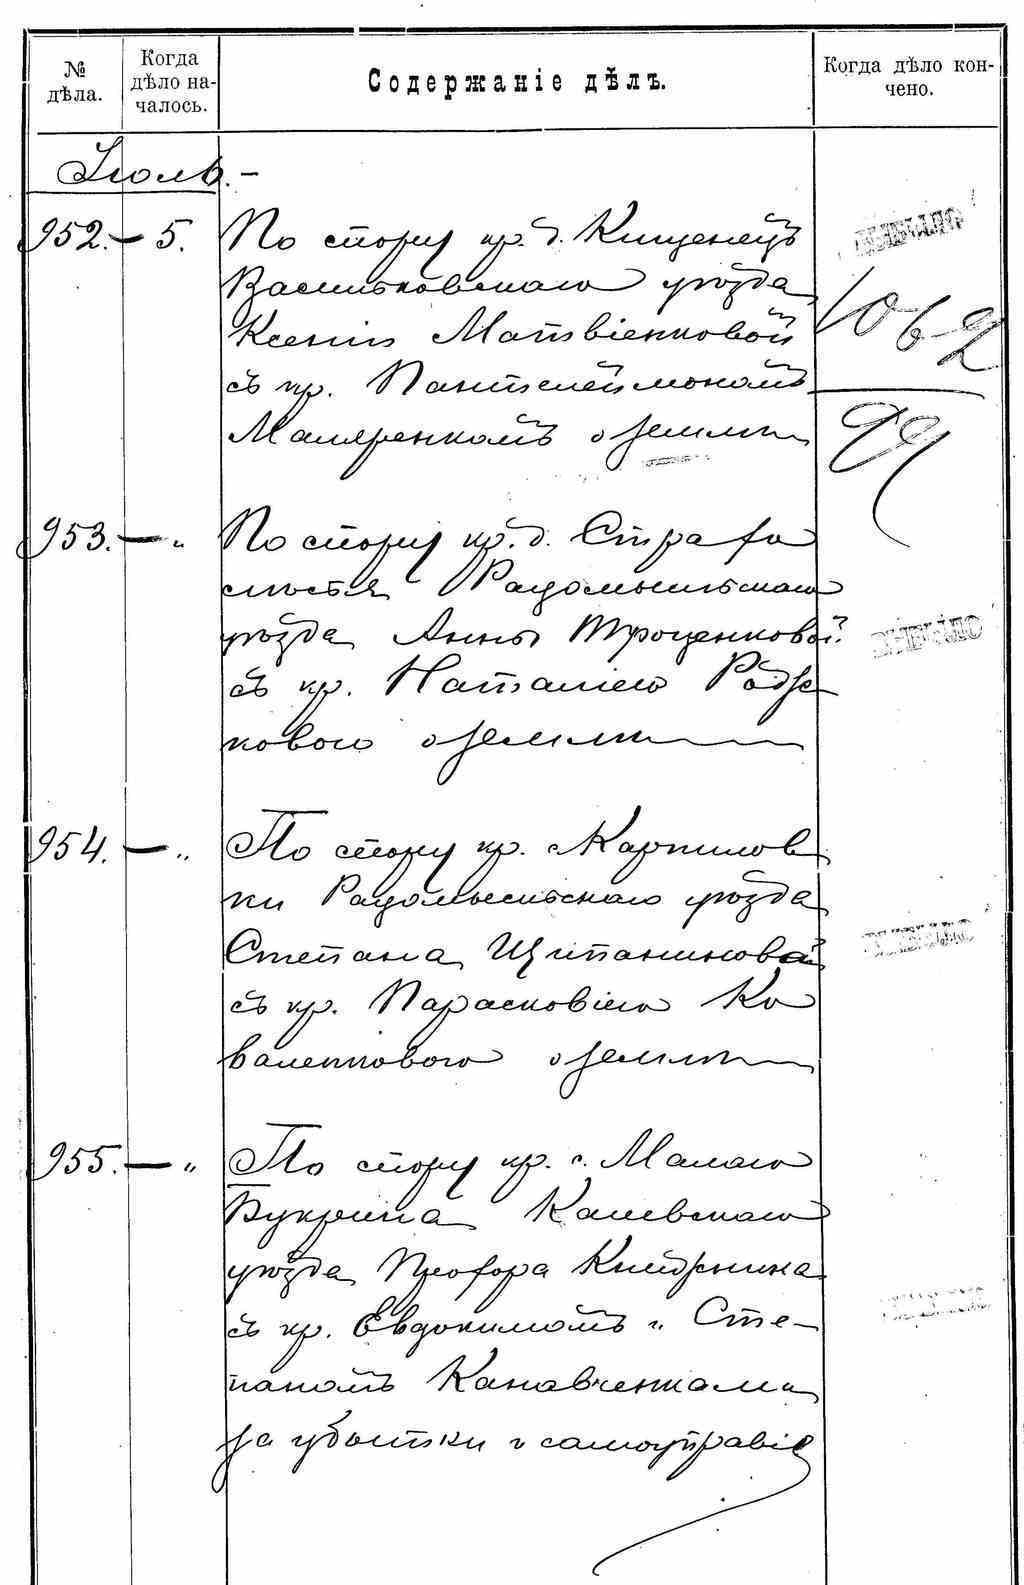 № дѣла.
Когда дѣло началось.
Содержаніе дѣлъ.
Когда дѣло кончено.
Іюль. –
952. – 5. По спору кр. д. Кищенецъ
Васильковскаго уѣзда
Ксеніи Матвіенковой
съ кр. Пантелеймономъ
Маляренкомъ о землѣ
1062
99
953. – „ По спору кр. д. Страхо
лѣсья Радомысльскаго
уѣзда Анны Троценковой
съ кр. Наталіею
ковою о землѣ
954. – „ По спору кр. с. Карпилов
ки Радомысльскаго уѣзда
Степана
съ кр. Парасковіею Ко
валенковою о землѣ
955. – „ По спору кр. с. Малаго
Букрина Каневскаго
уѣзда
съ кр. Евдокимомъ и Сте–
паномъ Канавченками
за убытки и самоуправіе